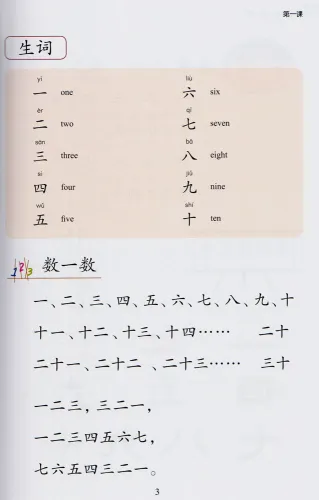 第一课
生词
yī liù
一 one 六 six
èr qī
二 two 七 seven
sān bā
三 three 八 eight
sì jiǔ
四 four 九 nine
wǔ shí
五 five 十 ten
123 数一数
一、二、三、四、五、六、七、八、九、十
十一、十二、十三、十四…… 二十
二十一、二十二、二十三…… 三十
一二三，三二一，
一二三四五六七，
七六五四三二一。
3